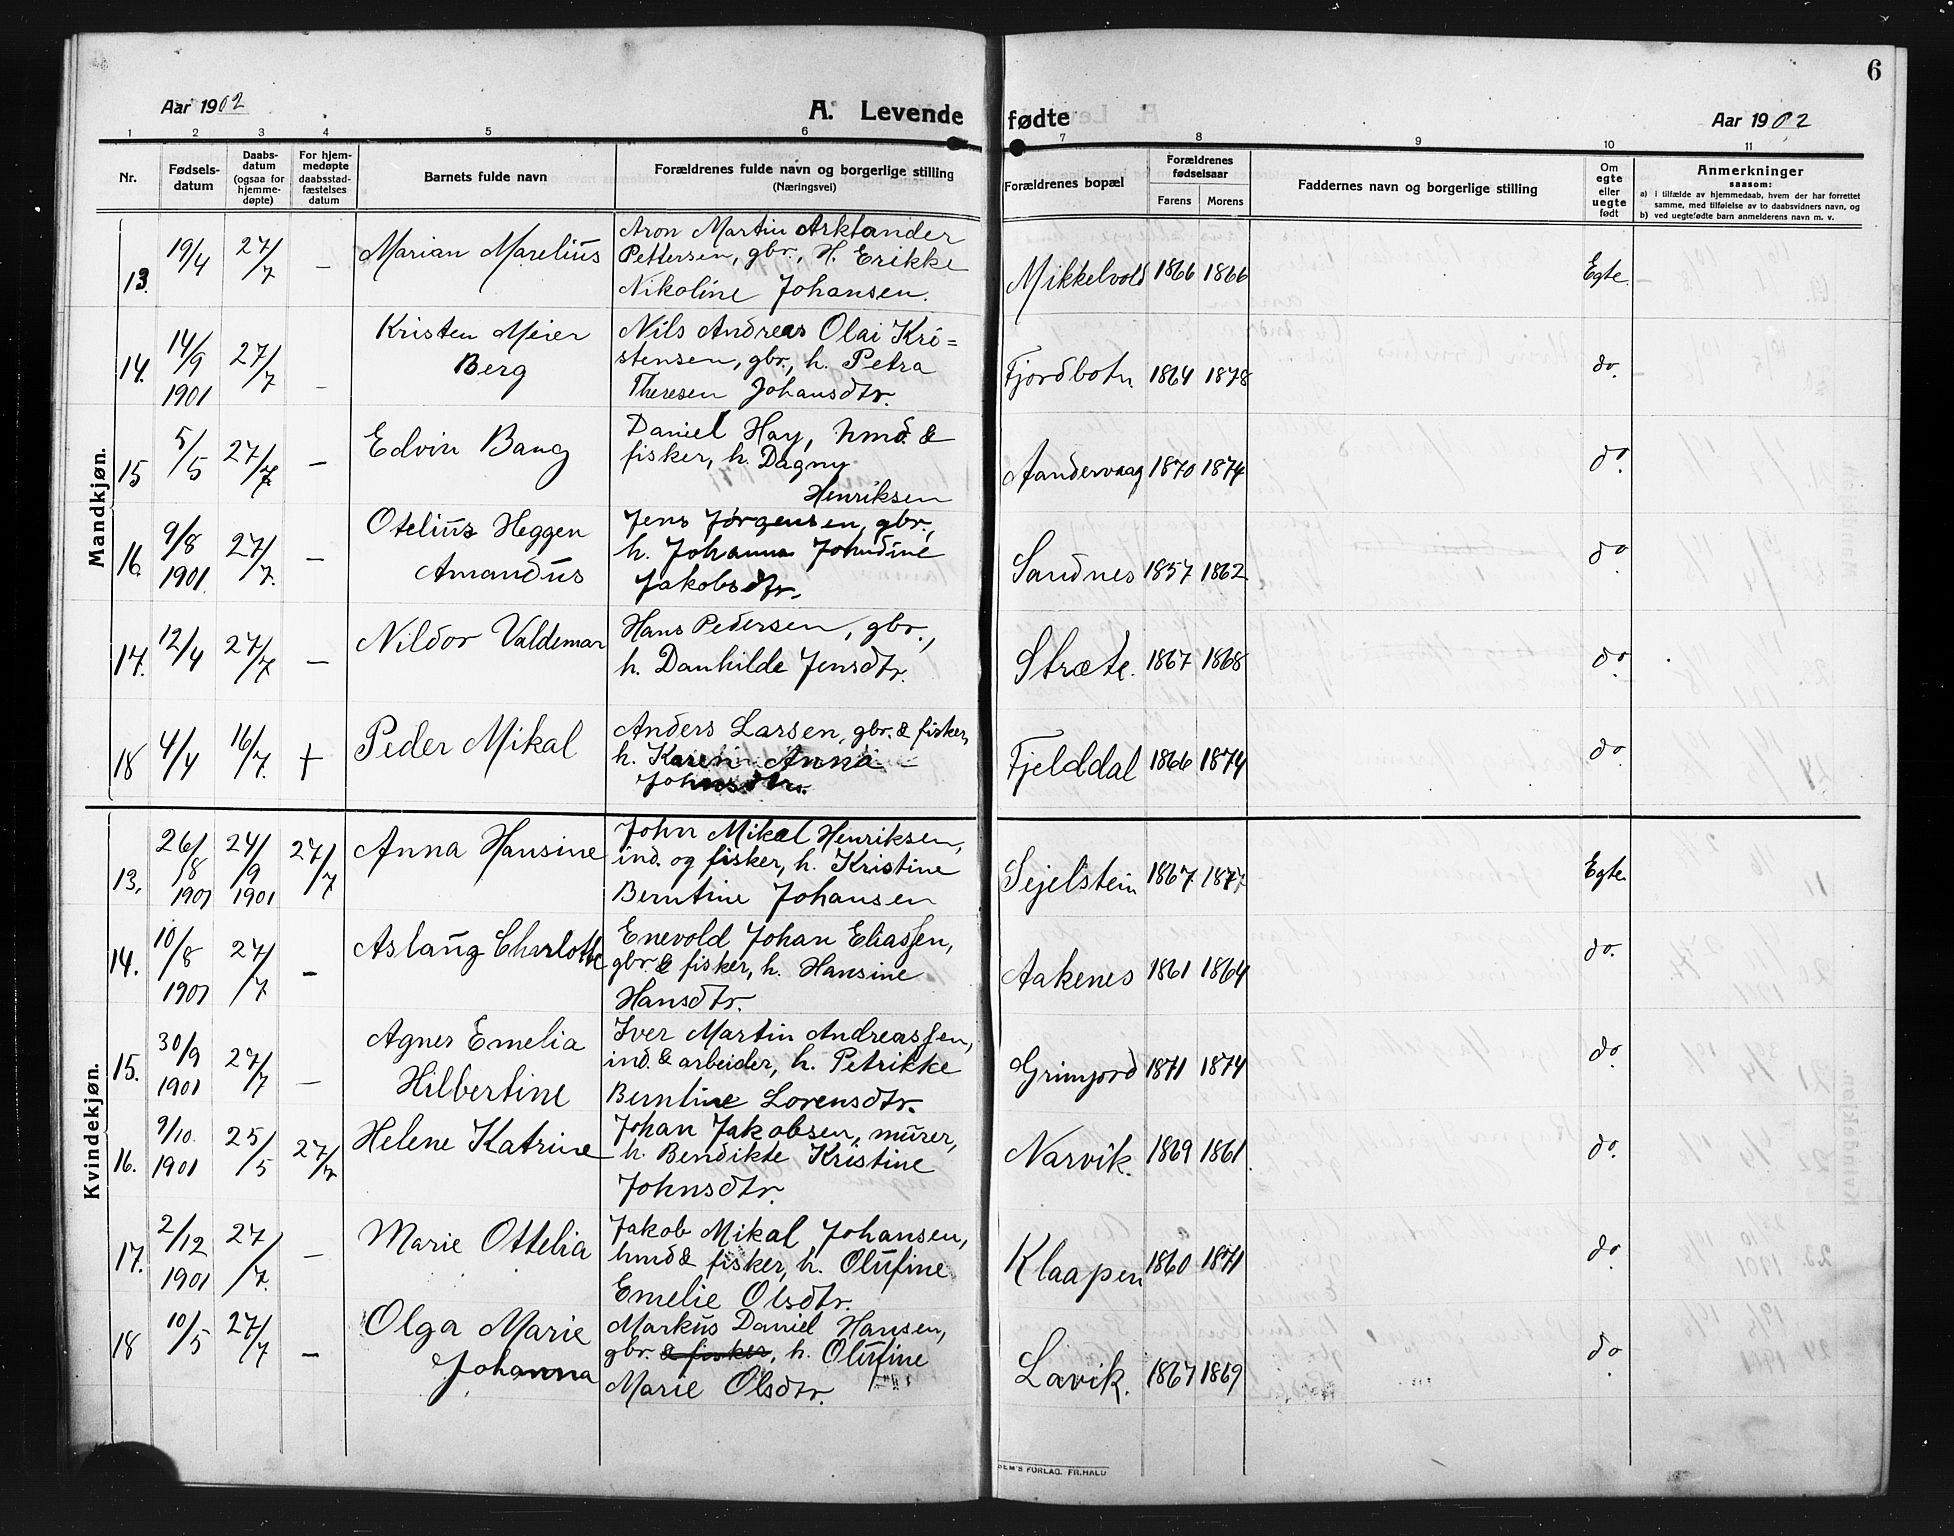 6
Aar 1902
A. Levende fødte
Aar 1902
1 2 3 4 5 6 7 8 9 10 11
Nr.
Fødsels-
datum
Daabs-
datum
(ogsaa for
hjemme-
døpte)
For hjem-
medøpte
daabsstad-
fæstelses
datum
Barnets fulde navn
Forældrenes fulde navn og borgerlige stilling
(Næringsvei)
Forældrenes bopæl
Forældrenes
fødselsaar
Farens Morens
Faddernes navn og borgerlige stilling
Om
egte
eller
uegte
født
Anmerkninger
saasom:
a) i tilfælde av hjemmedaab, hvem der har forrettet
samme, med tilføielse av to daabsvidners navn, og
b) ved uegtefødte barn anmelderens navn m. v.
Mandkjøn.
13. 19/4 27/7 – Marian Marelius
Aron Martin Arktander
Pettersen, gbr., H. Erikke
Nikoline Johansen.
Mikkelvold 1866 1866 Egte.
14. 14/9 1901 27/7 – Kristen Meier
Berg
Nils Andreas Olai Kri=
stensen, gbr., h. Petra
Theresen Johansdtr.
Fjordbotn 1864 1878 do.
15 5/5 27/7 – Edvin Bang
Daniel Hay, hmd. &
fisker, h. Dagny
Henriksen
Aandervaag 1870 1874 do.
16. 9/8 1901 27/7. – Otelius Heggen
Amandus
Jens Jørgensen, gbr.,
h. Johanna Johndine
Jakobsdtr.
Sandnes 1857 1862 do.
17. 12/4 27/7 – Nildor Valdemar
Hans Pedersen, gbr.,
h. Danhilde Jensdtr.
Stræte. 1867 1868 do.
18 4/4 16/7. + Peder Mikal
Anders Larsen, gbr. & fisker,
h. Karen Anna
Johnsdtr.
Fjelddal 1866 1874 do.
Kvindekjøn.
13. 26/8 1901 24/9 1901 27/7 Anna Hansine
John Mikal Henriksen,
ind. og fisker, h. Kristine
Berntine Johansen
Sejelstein 1867 1877 Egte.
14. 10/8 1901 27/7 – Aslaug Charlotte
Enevold Johan Eliassen,
gbr. & fisker, h. Hansine
Hansdtr.
Aakenes 1861 1864 do.
15. 30/9 1901 27/7 – Agnes Emelia
Hilbertine
Iver Martin Andreassen,
ind. & arbeider, h. Petrikke
Berntine Lorensdtr.
Grimjord 1871 1874 do.
16. 9/10. 1901 25/5 27/7 Helene Katrine
Johan Jakobsen, murer,
h. Bendikte Kristine
Johnsdtr.
Narvik. 1869 1861. do.
17. 2/12 1901 27/7. – Marie Ottelia
Jakob Mikal Johansen,
hmd & fisker, h. Olufine
Emelie Olsdtr.
Klaapen 1860 1871 do.
18 10/5 27/7 – Olga Marie
Johanna
Markus Daniel Hansen,
gbr. & fisker, h. Olufine
Marie Olsdtr.
Lavik. 1867 1869 do.
FORLAG. FR. HALD